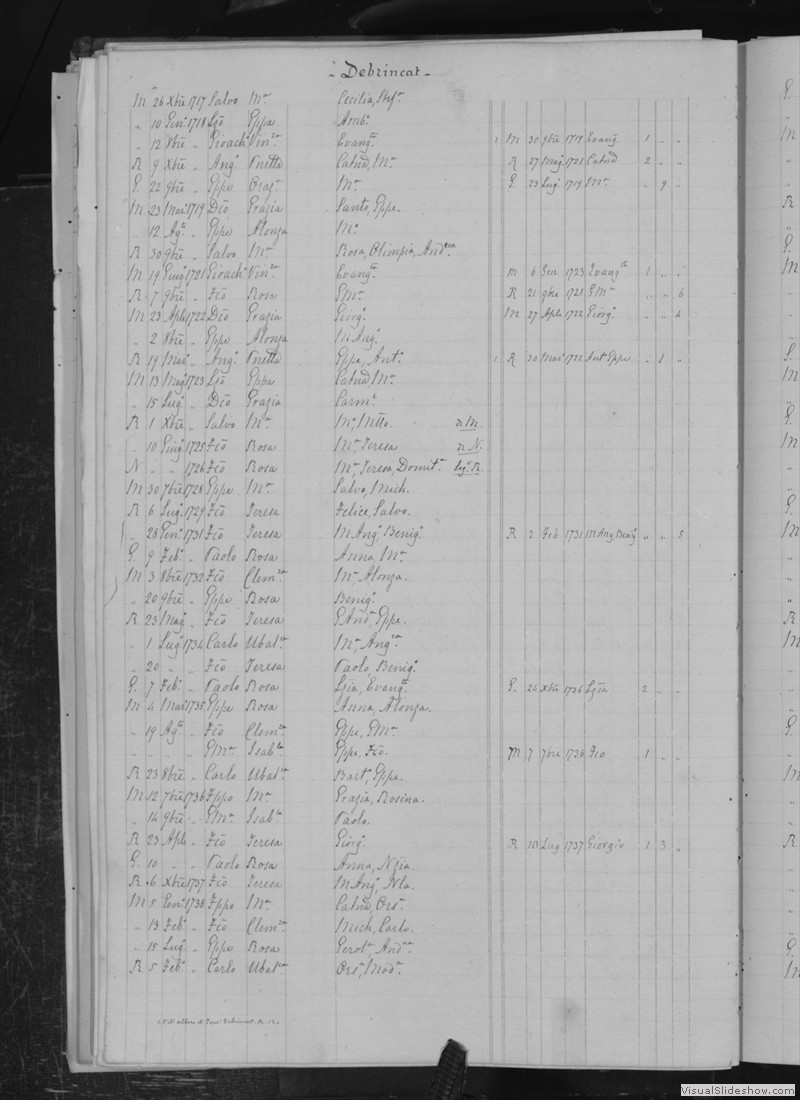 - Debrincat -
M 26 Xbre 1717 Salvo Ma Cecilia, Stefa
„ 10 Genº 1718 Lzo Gppa Ambº
„ 12 8bre „ Gioachº Vinza Evangta 1 M 30 9bre 1719 Evang. 1 „ „
R 9 Xbre „ Angº Pnetta Catnd, Ma R 27 Magº 1721 Catnd 2 „ „
G. 22 9bre „ Gppe Oraza Ma G. 23 Lugº 1719 Ma „ 9 „
M 23 Marº 1719 Dco Grazia Santo, Gppe.
„ 12 Agto „ Gppe Alonza Ma
R 30 9bre „ Salvo Ma Rosa, Olimpia, Andrea
M 19 Giugº 1721 Gioachº Vinza Evangta M 6 Gen 1723 Evangta 1 „ „
R 7 9bre „ Fco Rosa GMa R 21 9bre 1721 GMa „ „ 6
M 23 Aple 1722 Dco Grazia Giorgº M 27 Aple 1722 Giorgº „ „ 4
„ 2 8bre „ Gppe Alonza M Angº
R 19 Marº „ Angº Pnetta Gppe, Antº 1 R 30 Marº 1722 Antº Gppe „ 1 „
M 13 Magº 1723 Lzo Gppa Catnd Ma
„ 15 Lugº „ Dco Grazia Carmº
R 1 Xbre „ Salvo Ma Ma, Ntto. n M.
„ 10 Giugº 1725 Fco Rosa Ma Teresa n N.
N „ „ 1726 Fco Rosa Ma, Teresa, Domita R.
M 30 7bre 1728 Gppe Ma Salvo, Mich.
R 6 Lugº 1729 Fco Teresa Felice, Salvo.
„ 28 Genº 1731 Fco Teresa M Angº, Benigº R 2 Feb 1731 M Ang, Benigº „ „ 5
G. 9 Febº „ Paolo Rosa Anna Ma
M 3 8bre 1732 Fco Clemza Ma, Alonza.
„ 20 9bre „ Gppe Rosa Benigº
R 23 Magº „ Fco Teresa GAndª, Gppe.
„ 1 Lugº 1734 Carlo Ubalta Ma, Angca
„ 20 „ „ Fco Teresa Paolo, Benigº
G. 7 Febº „ Paolo Rosa Lzia, Evangta G. 24 Xbre 1736 Lzia 2 „ „
M 4 Marº 1735 Gppe Rosa Anna, Alonza.
„ 19 Agto „ Fco Clemza Gppe, GMa
„ „ „ „ GMa Isabla Gppe, Fco. M 7 7bre 1736 Fco 1 „ „
R 23 8bre „ Carlo Ubalta Bartº, Gppe.
M 12 7bre 1736 Fppo Ma Grazia, Rosina.
„ 14 9bre „ GMa Isabla Paolo.
R 23 Aple „ Fco Teresa Giorgº R 10 Lug 1737 Giorgio 1 3 „
G. 10 „ „ Paolo Rosa Anna, Nzia.
R 6 Xbre 1737 Fco Teresa M Angº, Nla.
M 5 Genº 1738 Fppo Ma Catnd, Orsª
„ 13 Febº „ Fco Clemza Mich, Carlo.
„ 15 Lugº „ Gppe Rosa Gerolº, Andrea
R 5 Febº „ Carlo Ubalta Orsª, Modª
VisualSlideshow.com